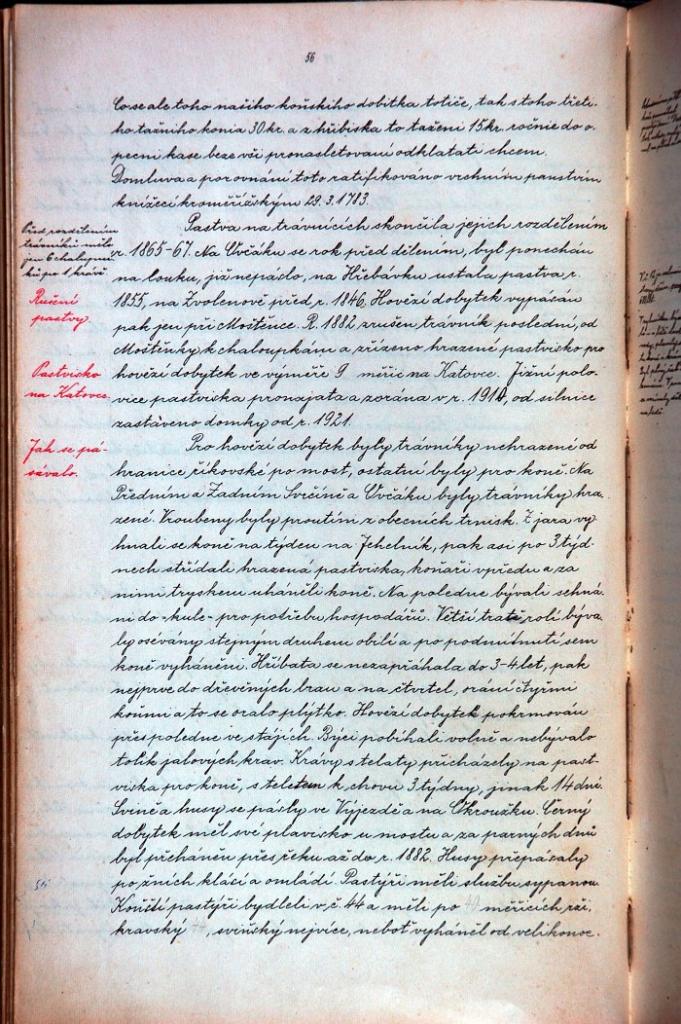 56
Co se ale toho našiho koňskiho dobitka totiče, tak s toho třeti-
ho tažniho konia 30 kr. a z hřibiska to taženi 15 kr. ročnie do o-
pecni kase beze vši pronasletovani odklatati chcem.
Domluva a porovnáni toto ratifikováno vrchnim panstvim
knížecí kroměřížským 29.3.1713.
Pastva na trávnících skončila jejich rozdělením
r. 1865-67. Na Ovčáku se rok před dělením, byl ponechán
na louku, již nepáslo, na Hřebávku ustala pastva r.
1855, na Zvolenově před r. 1846. Hovězí dobytek vypásán
pak jen při Moštěnce. R. 1882 zrušen trávník poslední, od
Moštěnky k chaloupkám a zřízeno hrazené pastvisko pro
hovězí dobytek ve výměře 9 měřic na Katovce. Jižní polo-
vice pastviska pronajata a zorána v r. 1910, od silnice
zastavěno domky od r. 1921.
Pro hovězí dobytek byly trávníky nehrazené od
hranice říkovské po most, ostatní byly pro koně. Na
Předním a Zadním Svrčíně a Ovčáku byly trávníky hra-
zené. Vroubeny byly proutím z obecních trnisk. Z jara vy-
hnali se koně na týden na Jehelník, pak asi po 3 týd-
nech střídali hrazená pastviska, koňaři vpředu a za
nimi tryskem uháněli koně. Na poledne bývali sehná-
ni do "kule" pro potřebu hospodářů. Větší tratě rolí býva-
ly osévány stejným druhem obilí a po podmítnutí sem
koně vyháněni. Hříbata se nezapřáhala do 3-4 let, pak
nejprve do dřevěných bran a na čtvrtel, oraní čtyřmi
koňmi a to se oralo plýtko. Hovězí dobytek pokrmován
přes poledne ve stájích. Býci pobíhali volně a nebývalo
tolik jalových krav. Krávy s telaty přicházely na past-
viska pro koně, s teletem k chovu 3 týdny, jinak 14 dní.
Svině a husy se pásly ve Výjezdě a na Okroužku. Černý
dobytek měl své plavisko u mostu a za parných dnů
byl přeháněn přes řeku až do r. 1882. Husy přepásaly
po žních klácí a omládí. Pastýři měli službu sypanou.
Koňští pastýři bydleli v č. 44 a měli po 40 měřicích rži,
kravský 44, sviňský nejvíce, neboť vyháněl od velikonoc.
Před rozdělením
trávníků mělo
jen 6 chalupní-
ků po 1 krávě.
Rušení
pastvy.
Pastvisko
na Katovce.
Jak se pá-
sávalo.